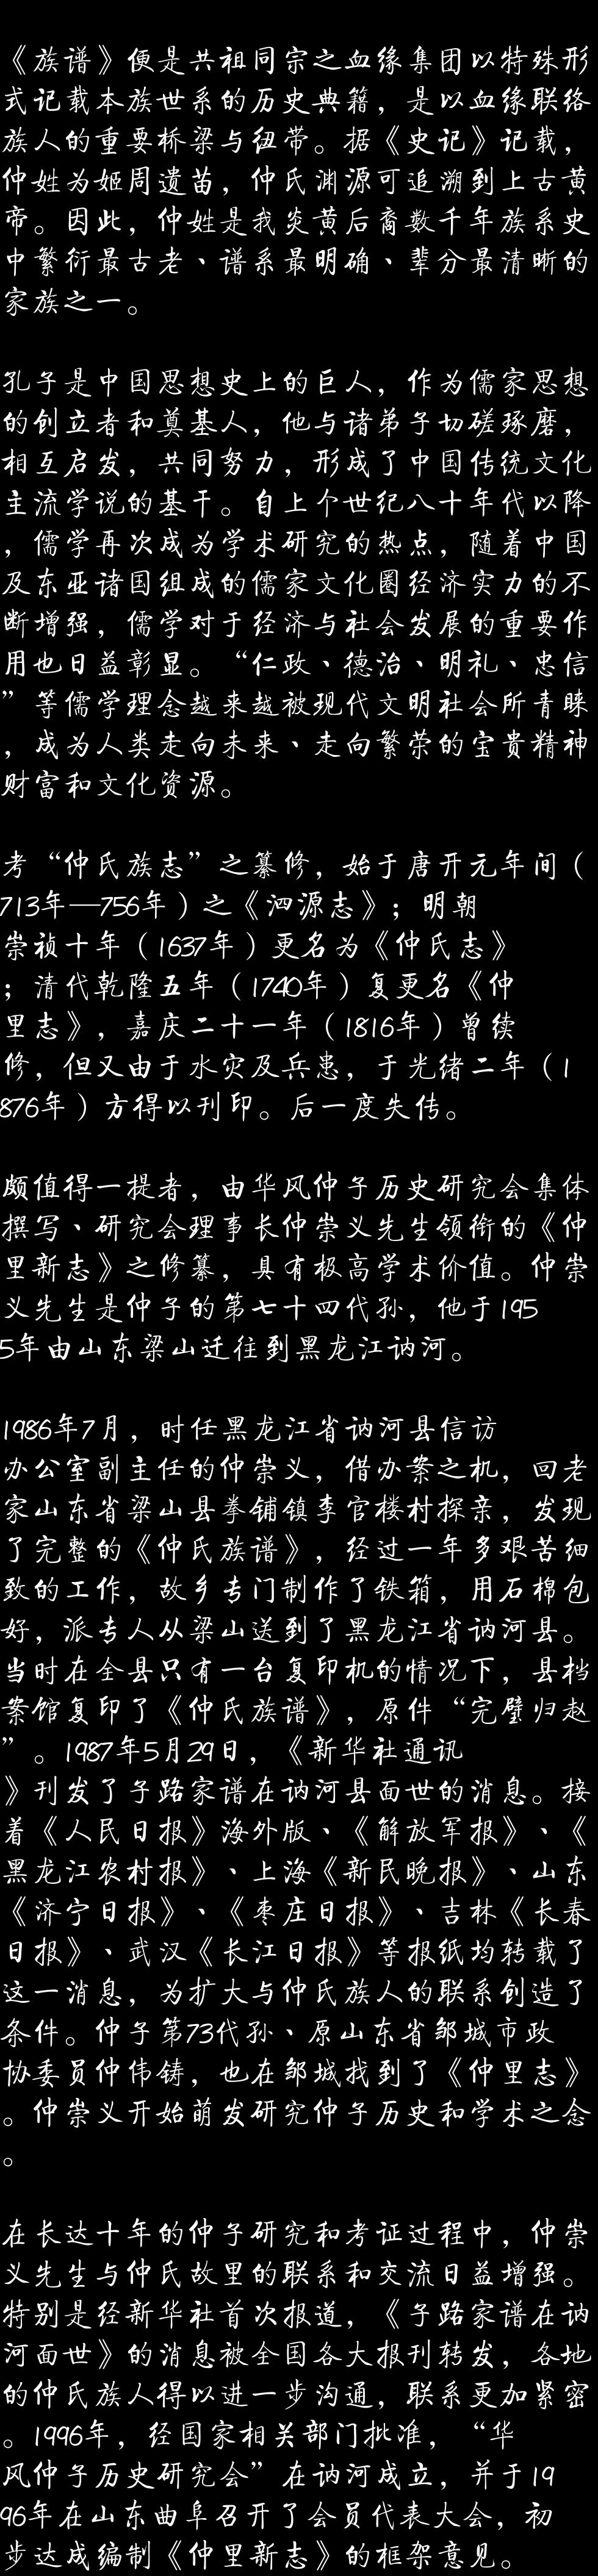 《族谱》便是共祖同宗之血缘集团以特殊形
式记载本族世系的历史典籍，是以血缘联络
族人的重要桥梁与纽带。据《史记》记载，
仲姓为姬周遗苗，仲氏渊源可追溯到上古黄
帝。因此，仲姓是我炎黄后裔数千年族系史
中繁衍最古老、谱系最明确、辈分最清晰的
家族之一。
孔子是中国思想史上的巨人，作为儒家思想
的创立者和奠基人，他与诸弟子切磋琢磨，
相互启发，共同努力，形成了中国传统文化
主流学说的基干。自上个世纪八十年代以降
，儒学再次成为学术研究的热点，随着中国
及东亚诸国组成的儒家文化圈经济实力的不
断增强，儒学对于经济与社会发展的重要作
用也日益彰显。“仁政、德治、明礼、忠信
”等儒学理念越来越被现代文明社会所青睐
，成为人类走向未来、走向繁荣的宝贵精神
财富和文化资源。
考“仲氏族志”之纂修，始于唐开元年间（
713年—756年）之《泗源志》；明朝
崇祯十年（1637年）更名为《仲氏志》
；清代乾隆五年（1740年）复更名《仲
里志》，嘉庆二十一年（1816年）曾续
修，但又由于水灾及兵患，于光绪二年（1
876年）方得以刊印。后一度失传。
颇值得一提者，由华风仲子历史研究会集体
撰写、研究会理事长仲崇义先生领衔的《仲
里新志》之修纂，具有极高学术价值。仲崇
义先生是仲子的第七十四代孙，他于195
5年由山东梁山迁往到黑龙江讷河。
1986年7月，时任黑龙江省讷河县信访
办公室副主任的仲崇义，借办案之机，回老
家山东省梁山县拳铺镇李官楼村探亲，发现
了完整的《仲氏族谱》，经过一年多艰苦细
致的工作，故乡专门制作了铁箱，用石棉包
好，派专人从梁山送到了黑龙江省讷河县。
当时在全县只有一台复印机的情况下，县档
案馆复印了《仲氏族谱》，原件“完璧归赵
”。1987年5月29日，《新华社通讯
》刊发了子路家谱在讷河县面世的消息。接
着《人民日报》海外版、《解放军报》、《
黑龙江农村报》、上海《新民晚报》、山东
《济宁日报》、《枣庄日报》、吉林《长春
日报》、武汉《长江日报》等报纸均转载了
这一消息，为扩大与仲氏族人的联系创造了
条件。仲子第73代孙、原山东省邹城市政
协委员仲伟铸，也在邹城找到了《仲里志》
。仲崇义开始萌发研究仲子历史和学术之念
。
在长达十年的仲子研究和考证过程中，仲崇
义先生与仲氏故里的联系和交流日益增强。
特别是经新华社首次报道，《子路家谱在讷
河面世》的消息被全国各大报刊转发，各地
的仲氏族人得以进一步沟通，联系更加紧密
。1996年，经国家相关部门批准，“华
风仲子历史研究会”在讷河成立，并于19
96年在山东曲阜召开了会员代表大会，初
步达成编制《仲里新志》的框架意见。